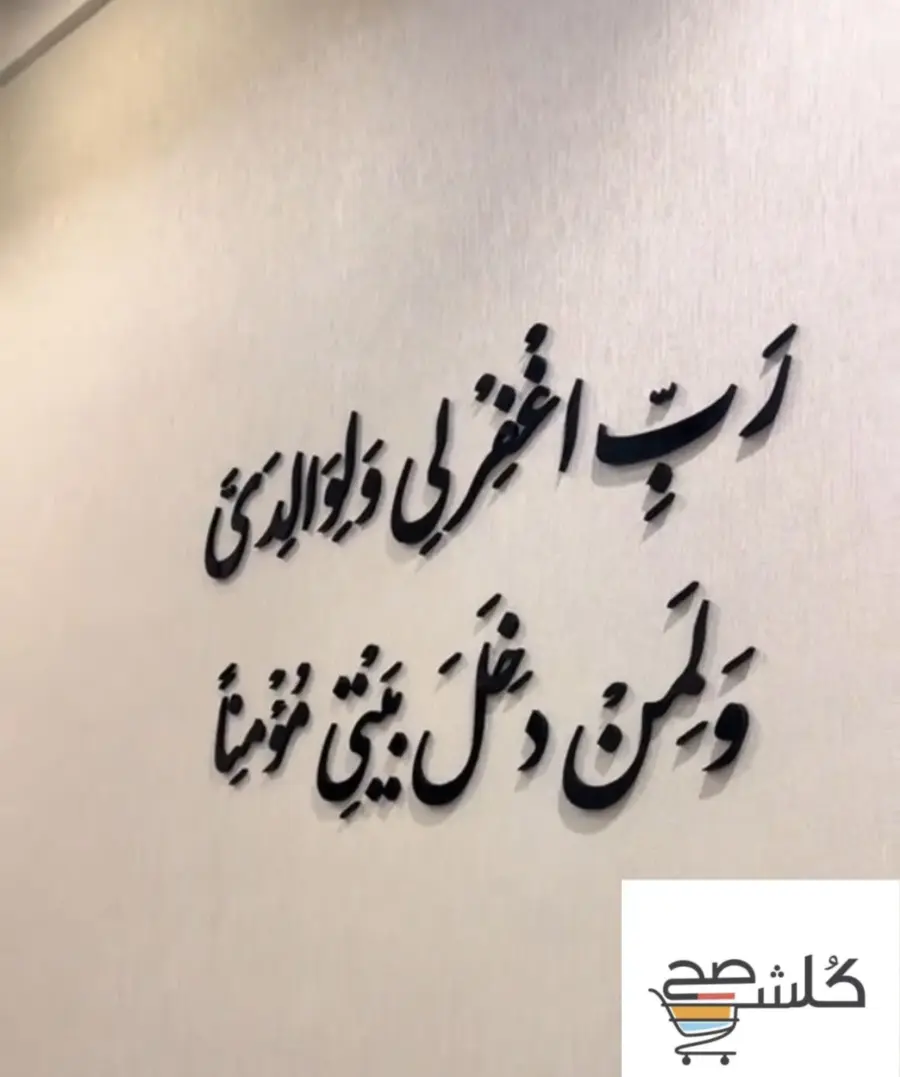 رَبِّ اغْفِرْ لِي وَلِوَالِدَيَّ
وَلِمَنْ دَخَلَ بَيْتِي مُؤْمِناً
كُلشـ صح